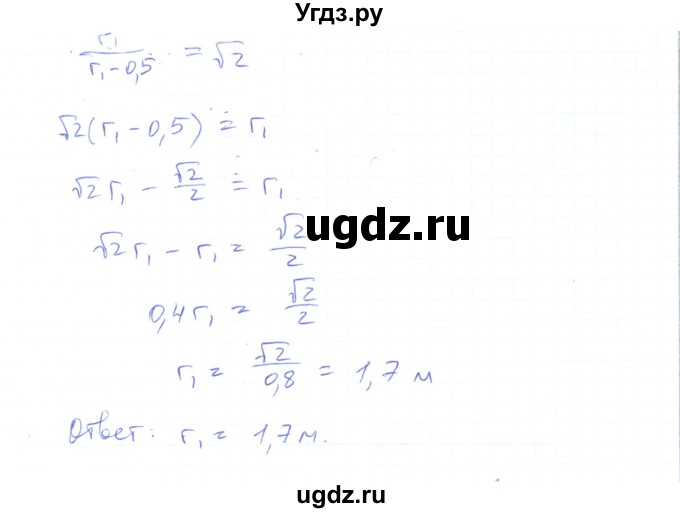 Угдз.ру
r₁/(r₁-0,5) = √2
√2(r₁-0,5) = r₁
√2 r₁ - √2/2 = r₁
ugdz.ru
√2 r₁ - r₁ = √2/2
0,4 r₁ = √2/2
r₁ = √2/0,8 = 1,7 м
Ответ: r₁ = 1,7 м.
ugdz.ru